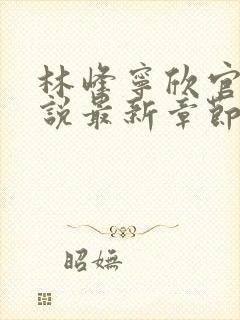 林峰寧欣官
說最新章節
昭嫵